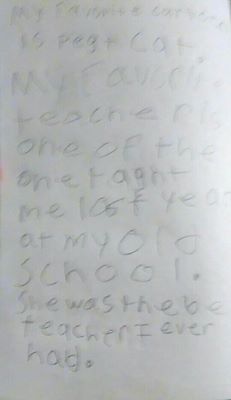 My Favorite cartoon
is pegt Cat.
My Favorite
teacher is
one of the
one taght
me last year
at my old
school.
She was the be
teacher I ever
had.